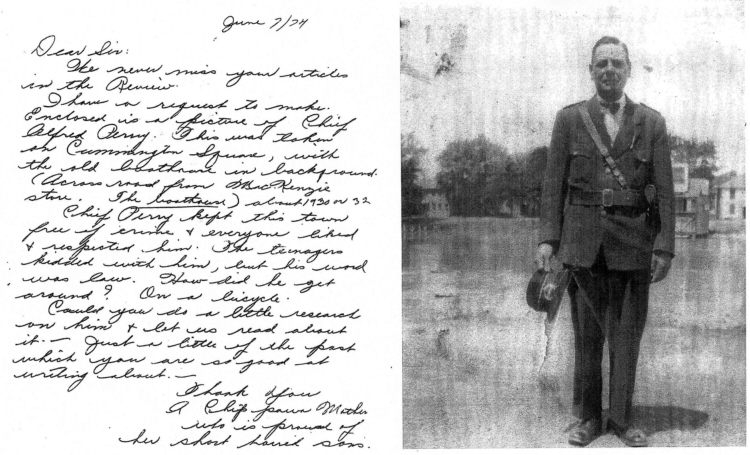 June 7/74
Dear Sir:
We never miss your articles
in the Review.
I have a request to make.
Enclosed is a picture of Chief
Alfred Perry. This was taken
on Cummington Square, with
the old boathouse in background.
(Across road from MacKenzie
store. The boathouse) about 1930 or 32
Chief Perry kept this town
free of crime & everyone liked
& respected him. The teenagers
kidded with him, but his word
was law. How did he get
around? On a bicycle.
Could you do a little research
on him & let us read about
it. — Just a little of the past
which you are so good at
writing about. —
Thank you
A Chippawa Mother
who is proud of
her short haired sons.